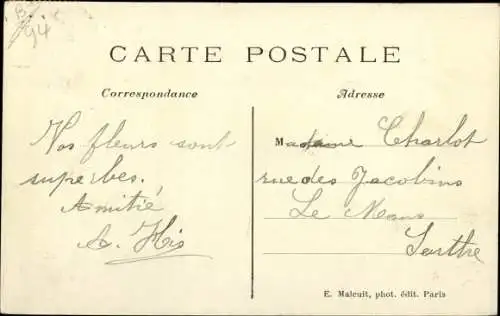 B
94
CARTE POSTALE
Correspondance
Adresse
Nos fleurs sont
superbes.
Amitié
Madame Charlot
rue des Jacobins
Le Mans
Sarthe
E. Malcuit, phot. édit. Paris